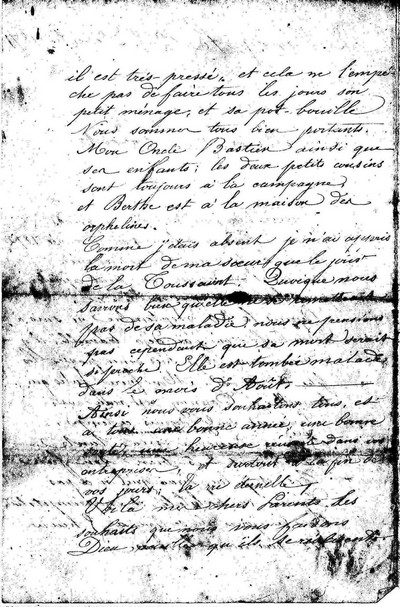 il est très-pressé, et cela ne l'empê-
che pas de faire tous les jours son
petit ménage, et sa pot-bouille
Nous sommes tous bien portants.
Mon Oncle Bastien ainsi que
ses enfants; les deux petits cousins
sont toujours à la campagne,
et Berthe est à la maison des
orphelines.
Comme j'étais absent je n'ai appris
la mort de ma sœur que le jour
de la Toussaint. Quoique nous
savions bien qu'elle ne
pas de sa maladie nous ne pensions
pas cependant que sa mort serait
si proche. Elle est tombée malade
dans le mois d'Août.
Ainsi nous vous souhaitons tous, et
à tous une bonne année, une bonne
santé, une heureuse réussite dans vos
entreprises, et surtout à la fin de
vos jours, la vie éternelle,
Voilà mes chers Parents les
souhaits que nous vous faisons
Dieu qu'ils se réalisent